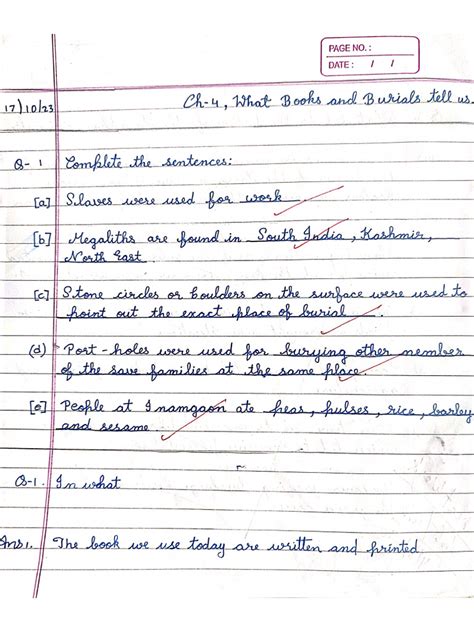 PAGE NO.:
DATE: / /
17/10/23
Ch-4, What Books and Burials tell us.
Q-1 Complete the sentences:
[a] Slaves were used for work
[b] Megaliths are found in South India, Kashmir,
North East.
[c] Stone circles or boulders on the surface were used to
point out the exact place of burial
(d) Port-holes were used for burying other member
of the save families at the same place.
[e] People at Inamgaon ate peas, pulses, rice, barley
and sesame.
Q-1. In what
Ans1. The book we use today are written and printed